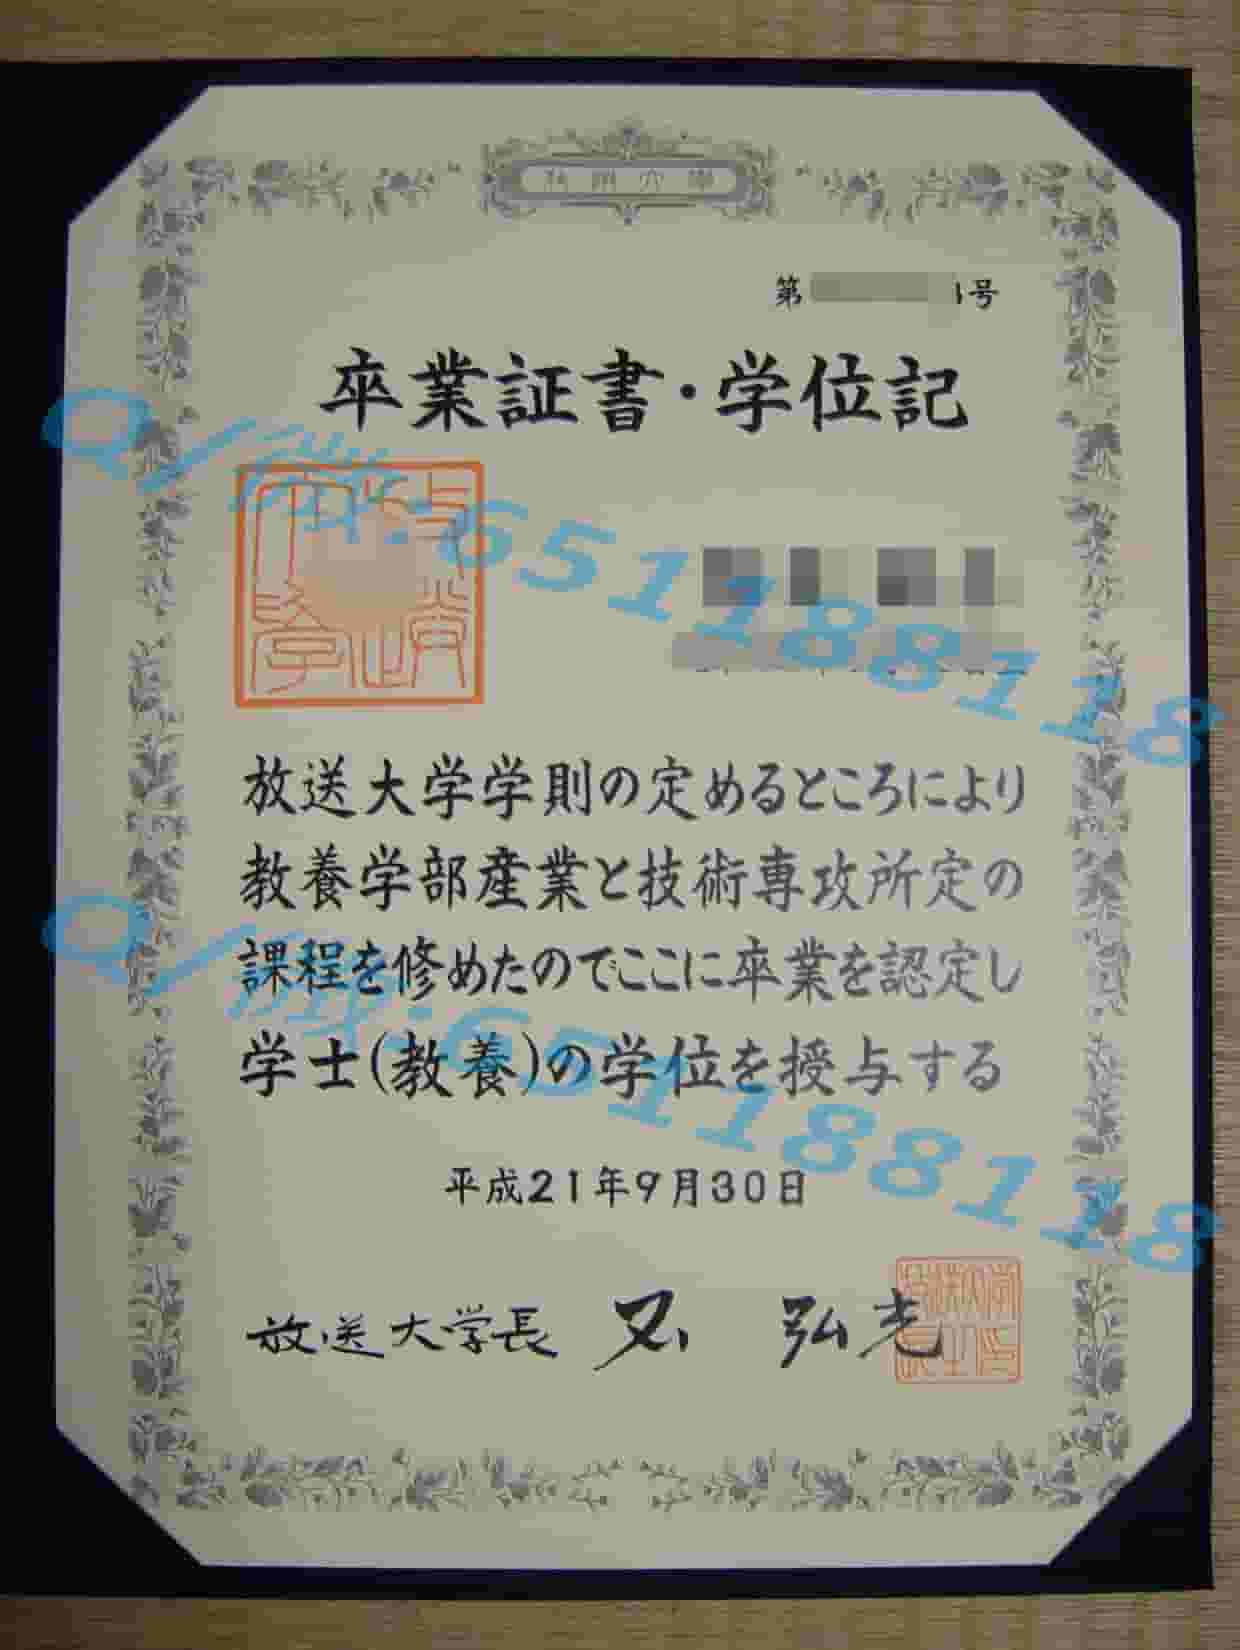 第 号
卒業証書・学位記
放送大学学則の定めるところにより
教養学部産業と技術専攻所定の
課程を修めたのでここに卒業を認定し
学士(教養)の学位を授与する
平成21年9月30日
放送大学長 弘光
Q/微信:651188118
Q/微信:651188118